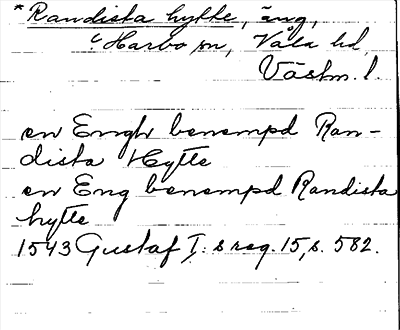 *Randista hytte, äng,
Harbo sn, Våla hd,
Västm. l.
en Engh benempd Ran-
dista Hytte
en Eng benempd Randista
hytte
1543 Gustaf I:s reg. 15, s. 582.